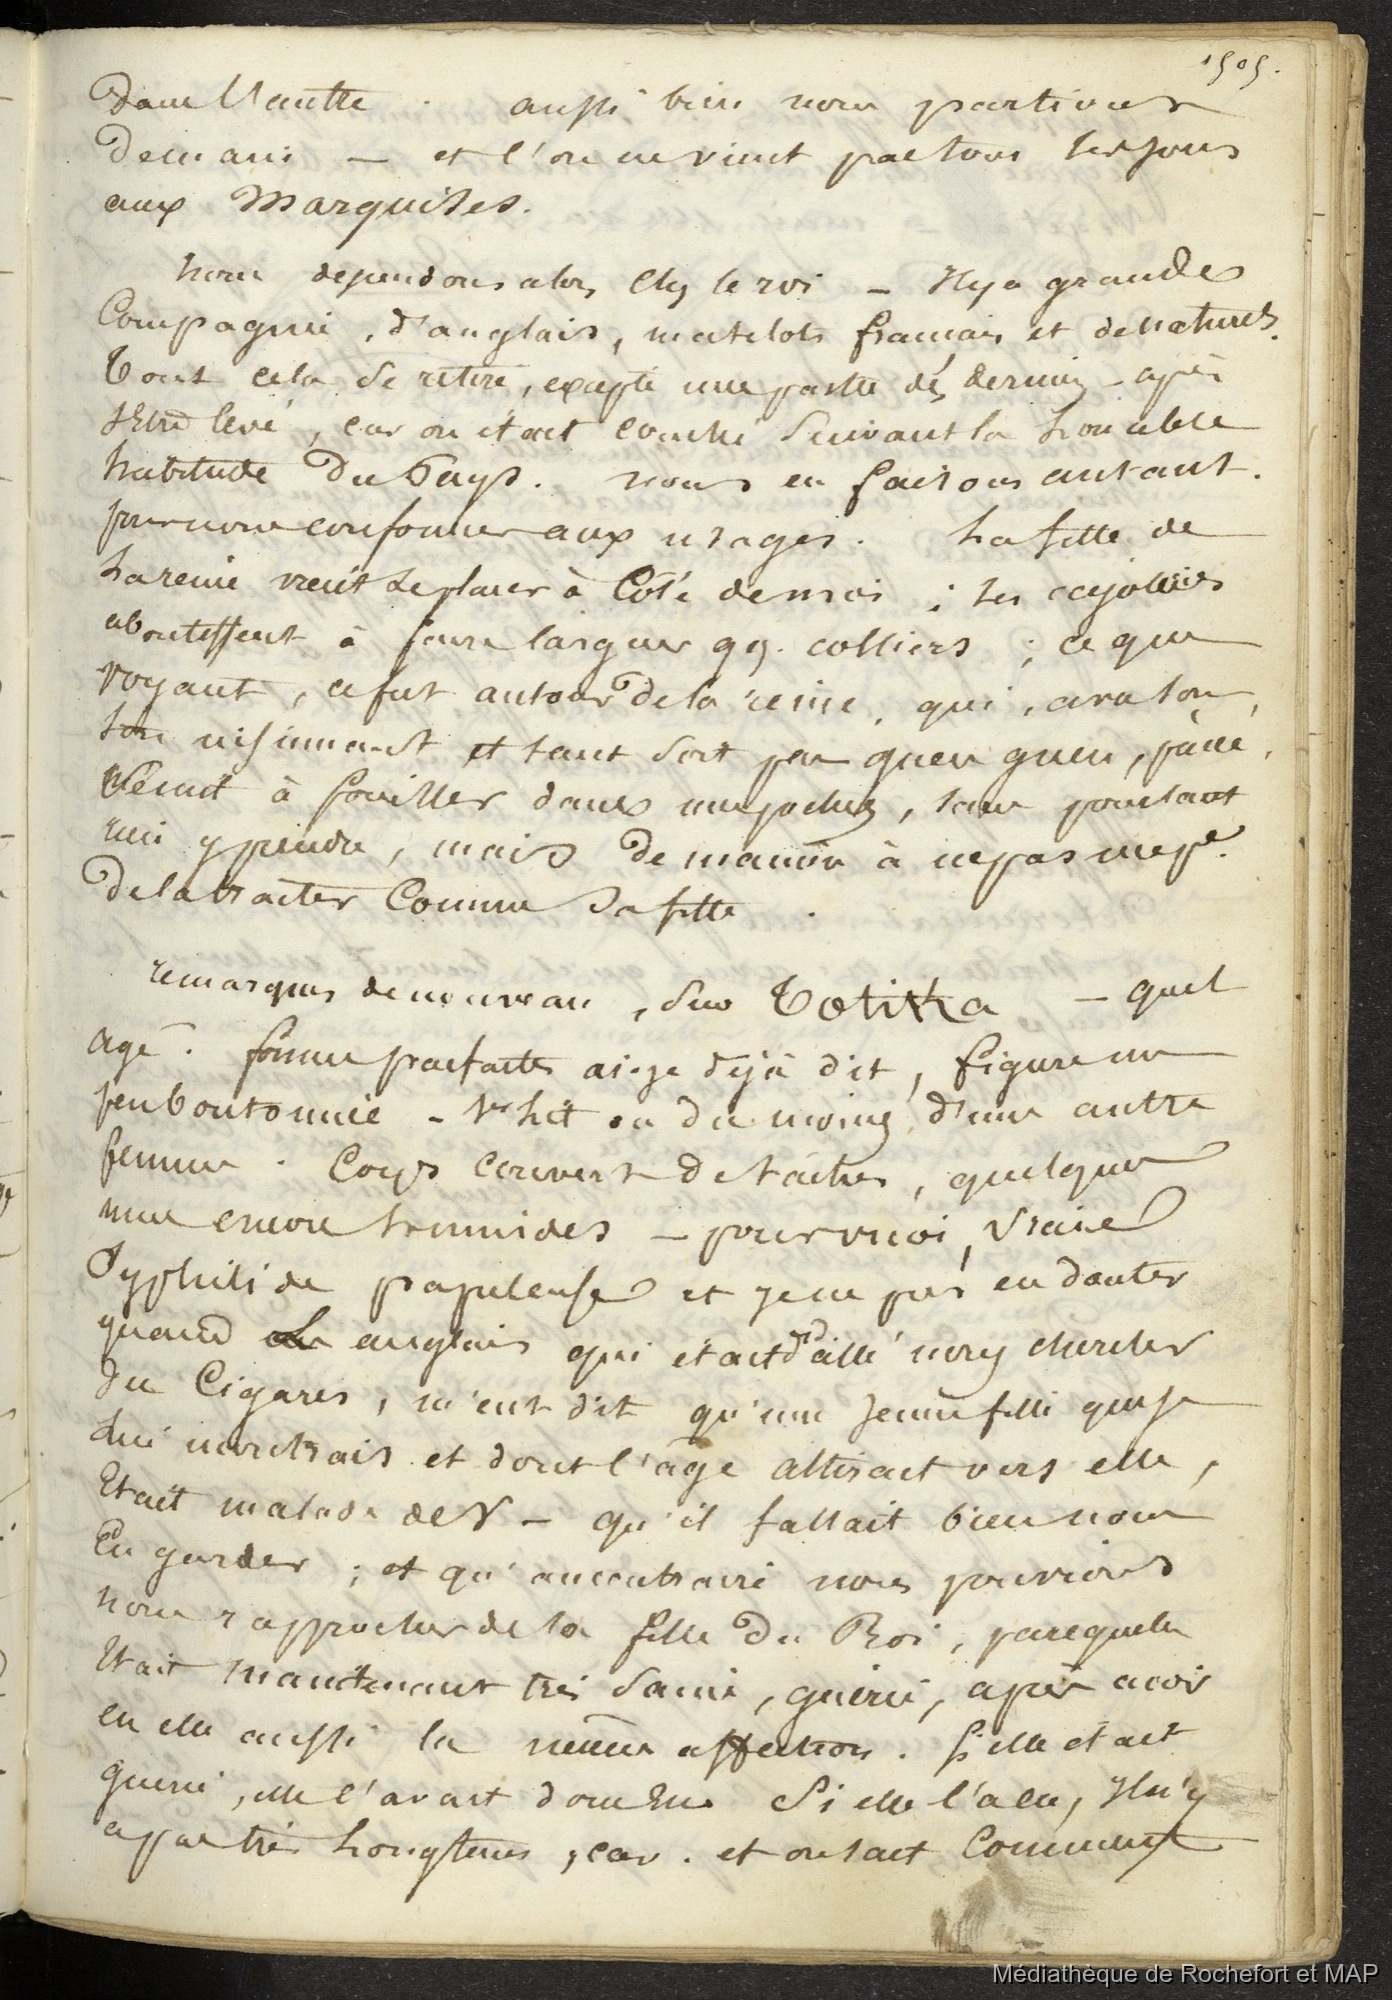 1505.
dans l'autre. aussi bien nous partirons
demain — et l'on ne vient pas tous les jours
aux Marquises.
nous dependons alors chez le roi — Il y a grande
Compagnie, d'anglais, matelots francais et de naturels.
Tout cela se retire, excepté une partie des derniers — après
s'etre levé, car on était couché suivant la louable
habitude du Pays. nous en faisons autant.
pour nous conformer aux usages. La fille de
La reine vient se placer à Côté de moi ; ses cajoleries
aboutissent à faire larguer qq. colliers ; ce que
voyant, ce fut autour de la reine, qui, avec son
ton insinuant et tant soit peu
vient à fouiller dans mes poches, sans pourtant
rien y prendre, mais de manière à ne pas
de la traiter Comme sa fille.
remarques de nouveau, sur Totitka — quel
age. forme parfaite ai-je déjà dit, figure un
peu boutonnée — ou du moins d'une autre
femme. Corps couvert de tâches, quelques
unes encore humides — pour moi, vraie
Syphilide papuleuse et je ne pus en douter
quand un anglais qui était allé nous chercher
des Cigares, m'eut dit qu'une jeune fille que je
lui montrais et dont l'âge attirait vers elle,
Etait malade de V — qu'il fallait bien nous
En garder ; et qu'au contraire nous pouvions
nous rapprocher de la fille du Roi, parcequ'elle
Etait maintenant très saine, guérie, après avoir
eu elle aussi la même affection. Si elle était
guerie, elle l'avait donc eue Si elle l'a eue, Il n'y
a pas très Longtems, car. et on sait Comment
Médiathèque de Rochefort et MAP